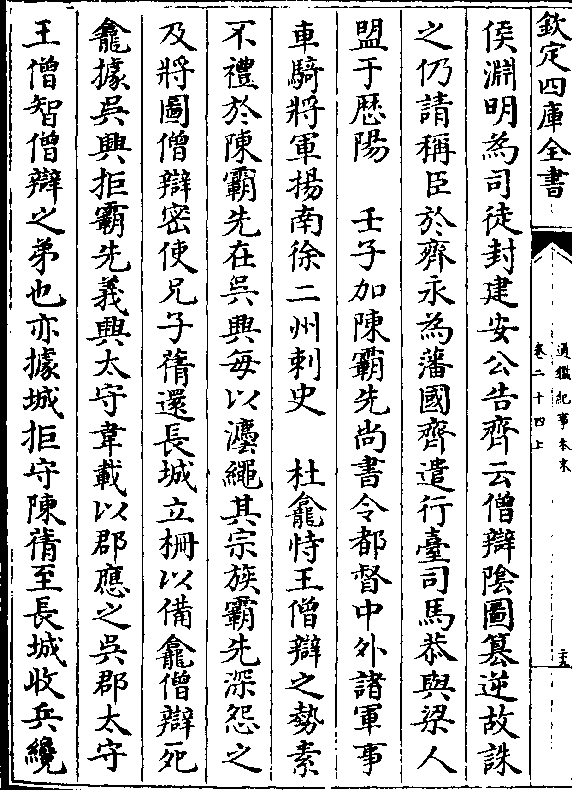 欽定四庫全書
通鑑紀事本末
卷二十四上
十五
侯淵明為司徒封建安公告齊云僧辯陰圖簒逆故誅
之仍請稱臣於齊永為藩國齊遣行臺司馬恭與梁人
盟于歷陽　壬子加陳霸先尚書令都督中外諸軍事
車騎將軍揚南徐二州刺史　杜龕恃王僧辯之勢素
不禮於陳霸先在吳興每以灋繩其宗族霸先深怨之
及將圖僧辯密使兄子蒨還長城立柵以備龕僧辯死
龕據吳興拒霸先義興太守韋載以郡應之吳郡太守
王僧智僧辯之弟也亦據城拒守陳蒨至長城收兵纔